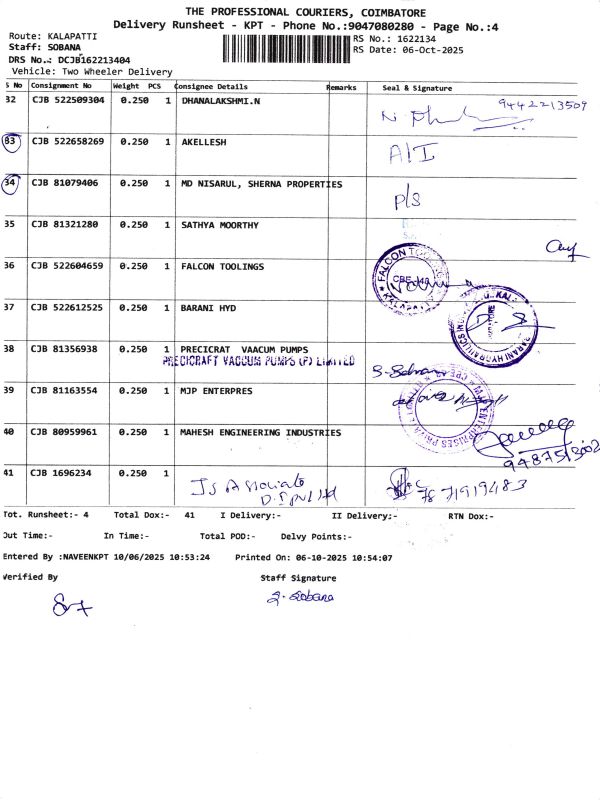 THE PROFESSIONAL COURIERS, COIMBATORE
Delivery Runsheet - KPT - Phone No.:9047080280 - Page No.:4
Route: KALAPATTI
Staff: SOBANA
DRS No.: DCJB162213404
Vehicle: Two Wheeler Delivery
RS No.: 1622134
RS Date: 06-Oct-2025
S No Consignment No Weight PCS Consignee Details Remarks Seal & Signature
32 CJB 522509304 0.250 1 DHANALAKSHMI.N 9442213509
33 CJB 522658269 0.250 1 AKELLESH A/I
34 CJB 81079406 0.250 1 MD NISARUL, SHERNA PROPERTIES P/S
35 CJB 81321280 0.250 1 SATHYA MOORTHY
36 CJB 522604659 0.250 1 FALCON TOOLINGS FALCON TOOLINGS
37 CJB 522612525 0.250 1 BARANI HYD
38 CJB 81356938 0.250 1 PRECICRAT VAACUM PUMPS
PRECICRAFT VACCUM PUMPS (P) LIMITED
39 CJB 81163554 0.250 1 MJP ENTERPRES
40 CJB 80959961 0.250 1 MAHESH ENGINEERING INDUSTRIES
41 CJB 1696234 0.250 1 7871919483
Tot. Runsheet:- 4 Total Dox:- 41 I Delivery:- II Delivery:- RTN Dox:-
Out Time:- In Time:- Total POD:- Delvy Points:-
Entered By :NAVEENKPT 10/06/2025 10:53:24 Printed On: 06-10-2025 10:54:07
Verified By Staff Signature
S. Sobana